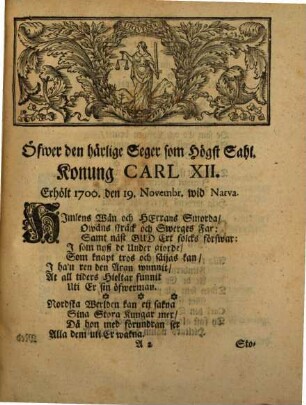 Öfwer den härlige Seger som Högst Sahl.
Konung CARL XII.
Erhölt 1700. den 19. Novembr. wid Narva.
HImlens Wän och HErrans Smorda/
Owäns skräck och Swerges Far:
Samt näst GUD Ert folcks förswar:
I som nyß de Under giorde/
Som knapt tros och säijas kan/
I ha'n ren den Äran wunnit/
At all tiders Hieltar funnit
Uti Er sin öfwerman.
Nordska Werlden kan eij sakna
Sina Stora Kungar mer/
Då hon med förundran ser
Alla dem uti Er wakna.
A 2
Sto-